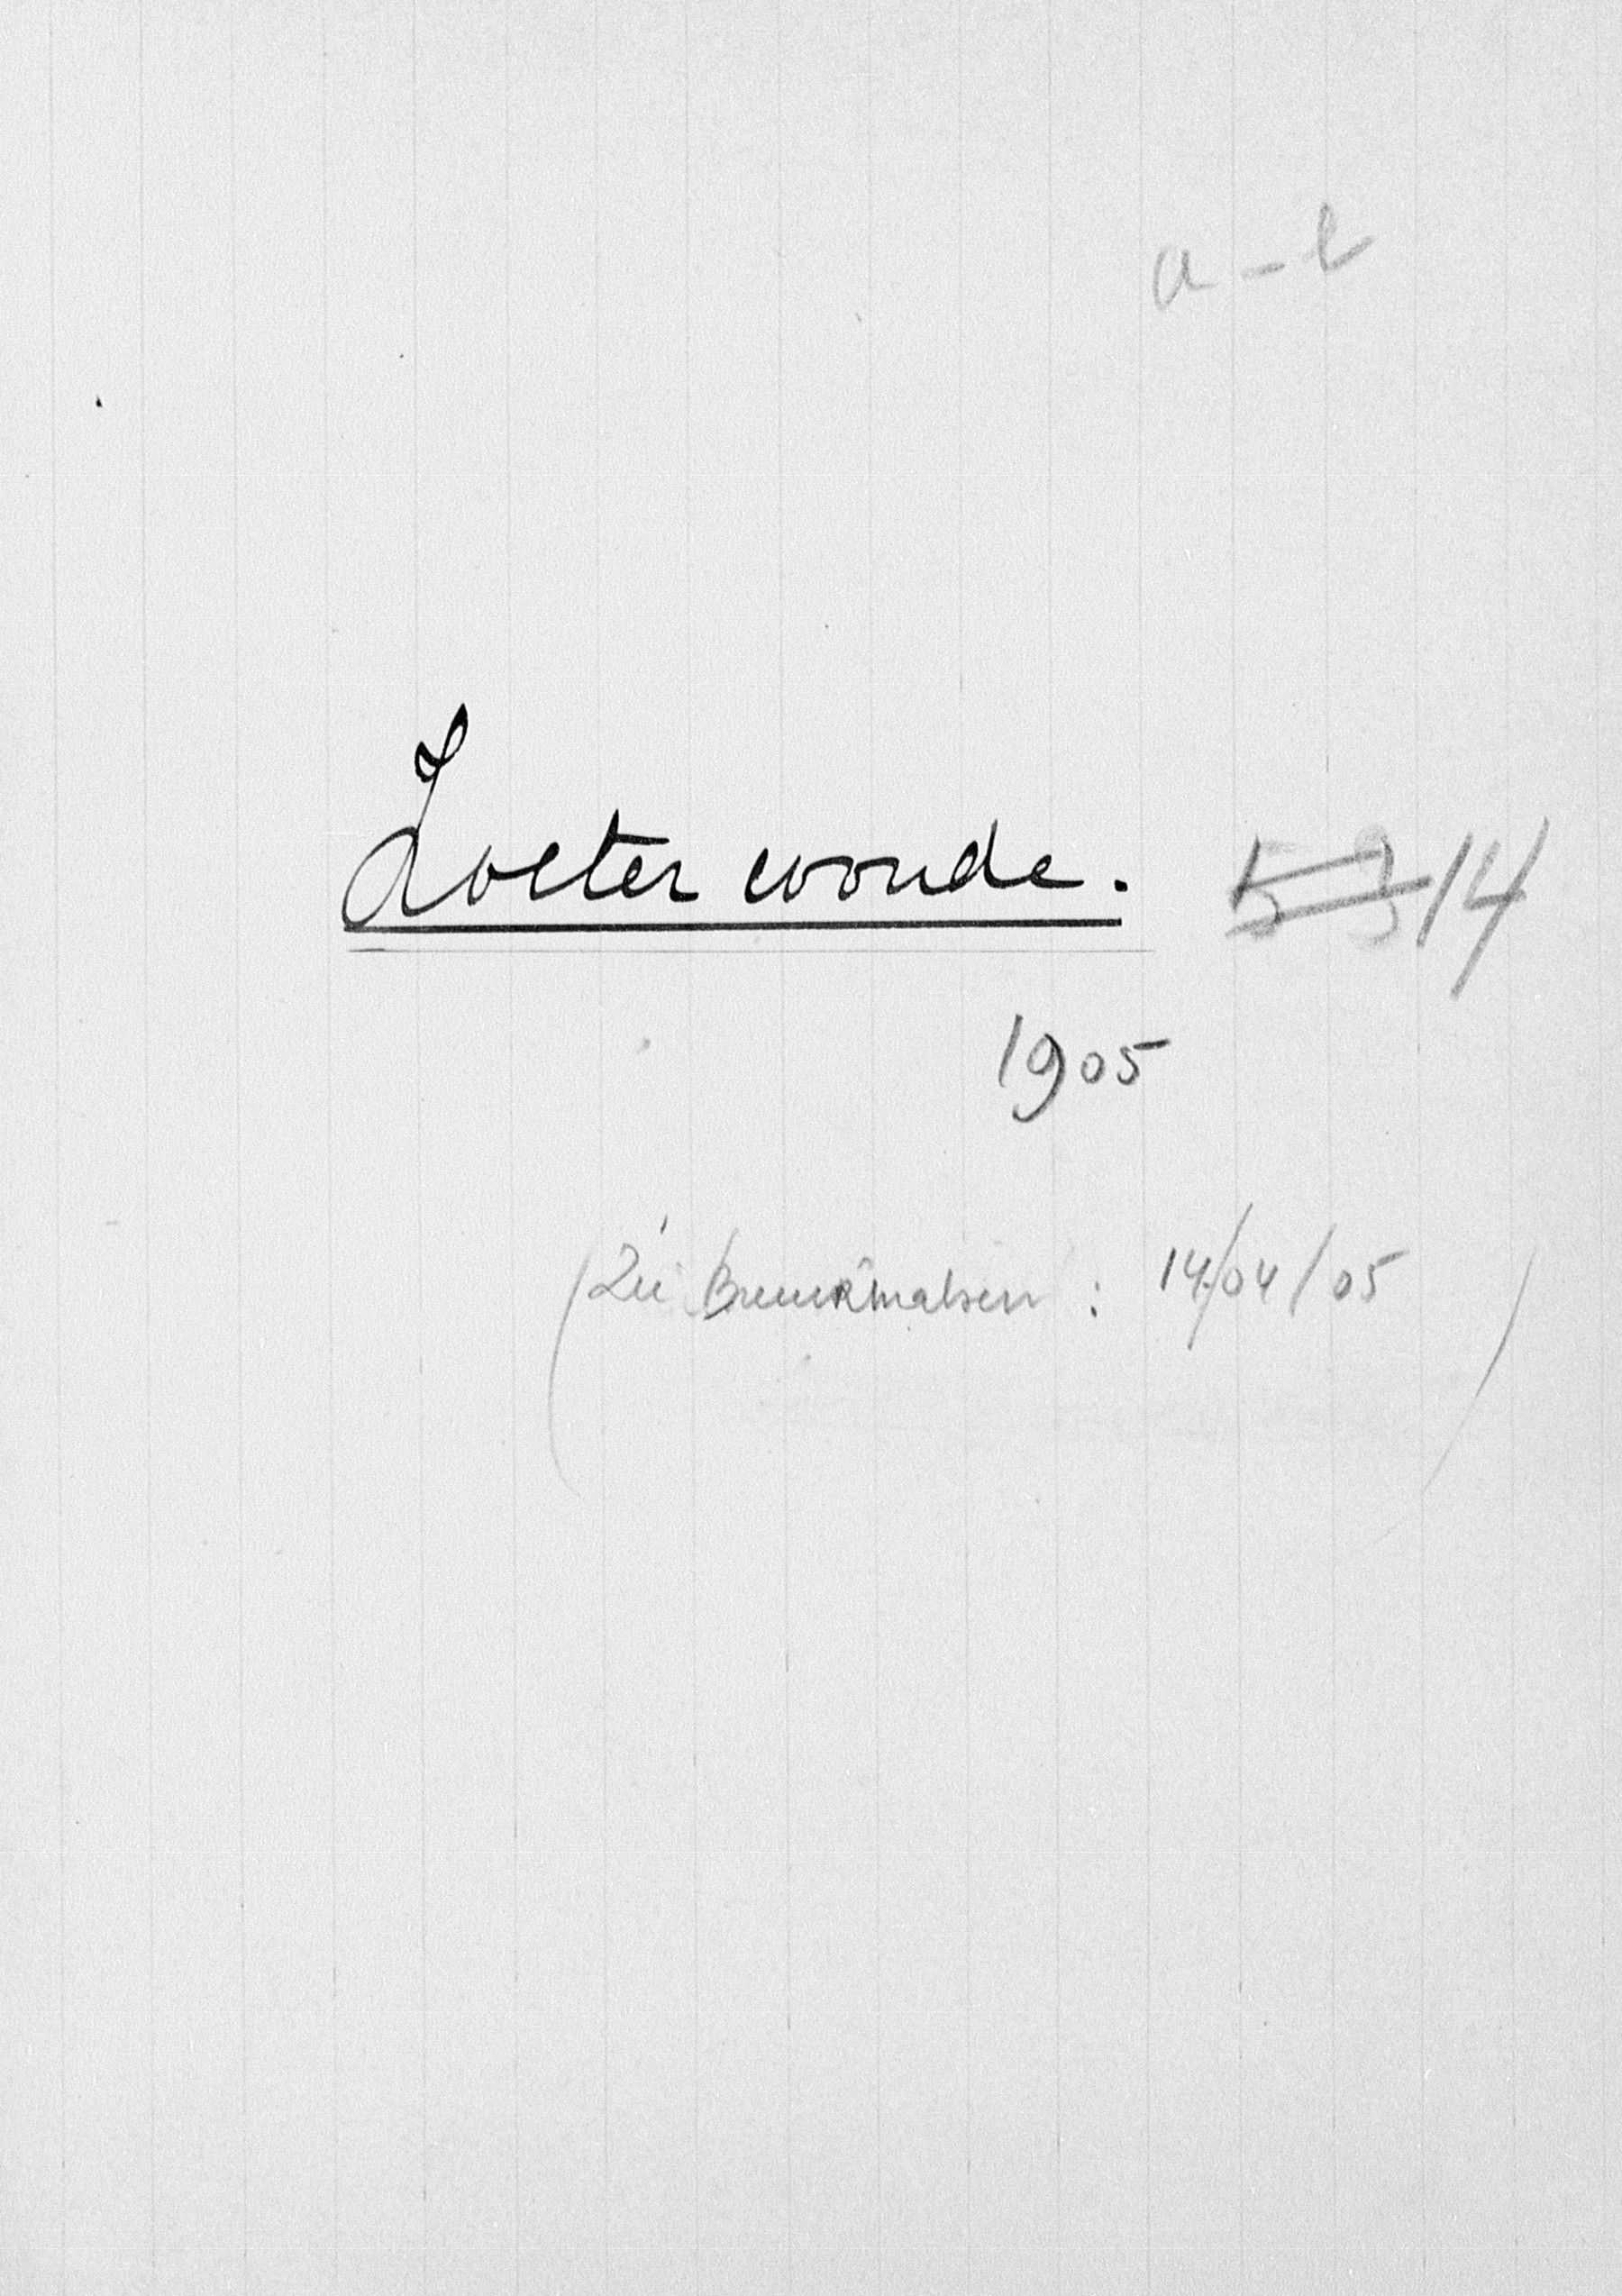 a - e
Zoeterwoude. 53 14
1905
(Zie Buurmalsen : 14/04/05)